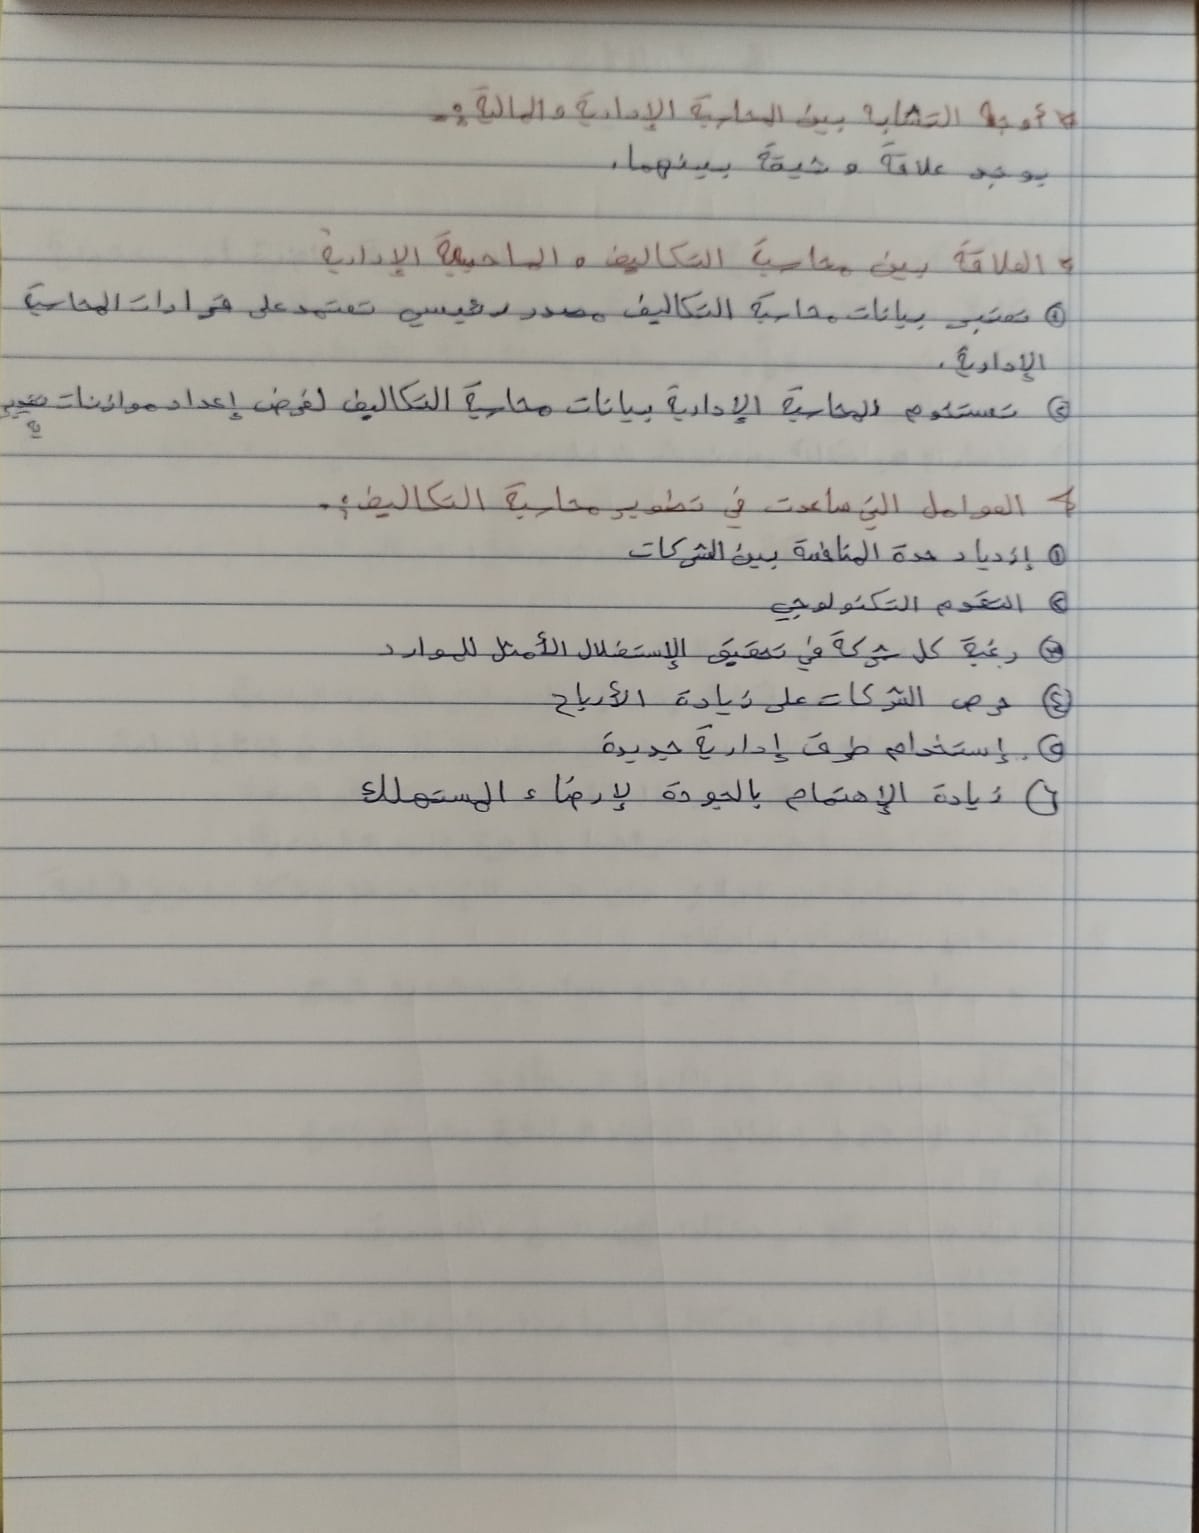 * أوجه التشابه بين المحاسبة الإدارية والمالية ؟.
يوجد علاقة وثيقة بينهما.
* العلاقة بين محاسبة التكاليف و الإدارية
① تعتبر بيانات محاسبة التكاليف مصدر رئيسي تعتمد على قرارات المحاسبة
الإدارية.
② تستخدم المحاسبة الإدارية بيانات محاسبة التكاليف لغرض إعداد موازنات
* العوامل التي ساعدت في تطوير محاسبة التكاليف ؟.
① إزدياد حدة المنافسة بين الشركات
② التقدم التكنولوجي
③ رغبة كل شركة في تحقيق الإستغلال الأمثل للموارد
④ حرص الشركات على زيادة الأرباح
⑤ إستخدام طرق إدارية جديدة
⑥ زيادة الإهتمام بالجودة لإرضاء المستهلك